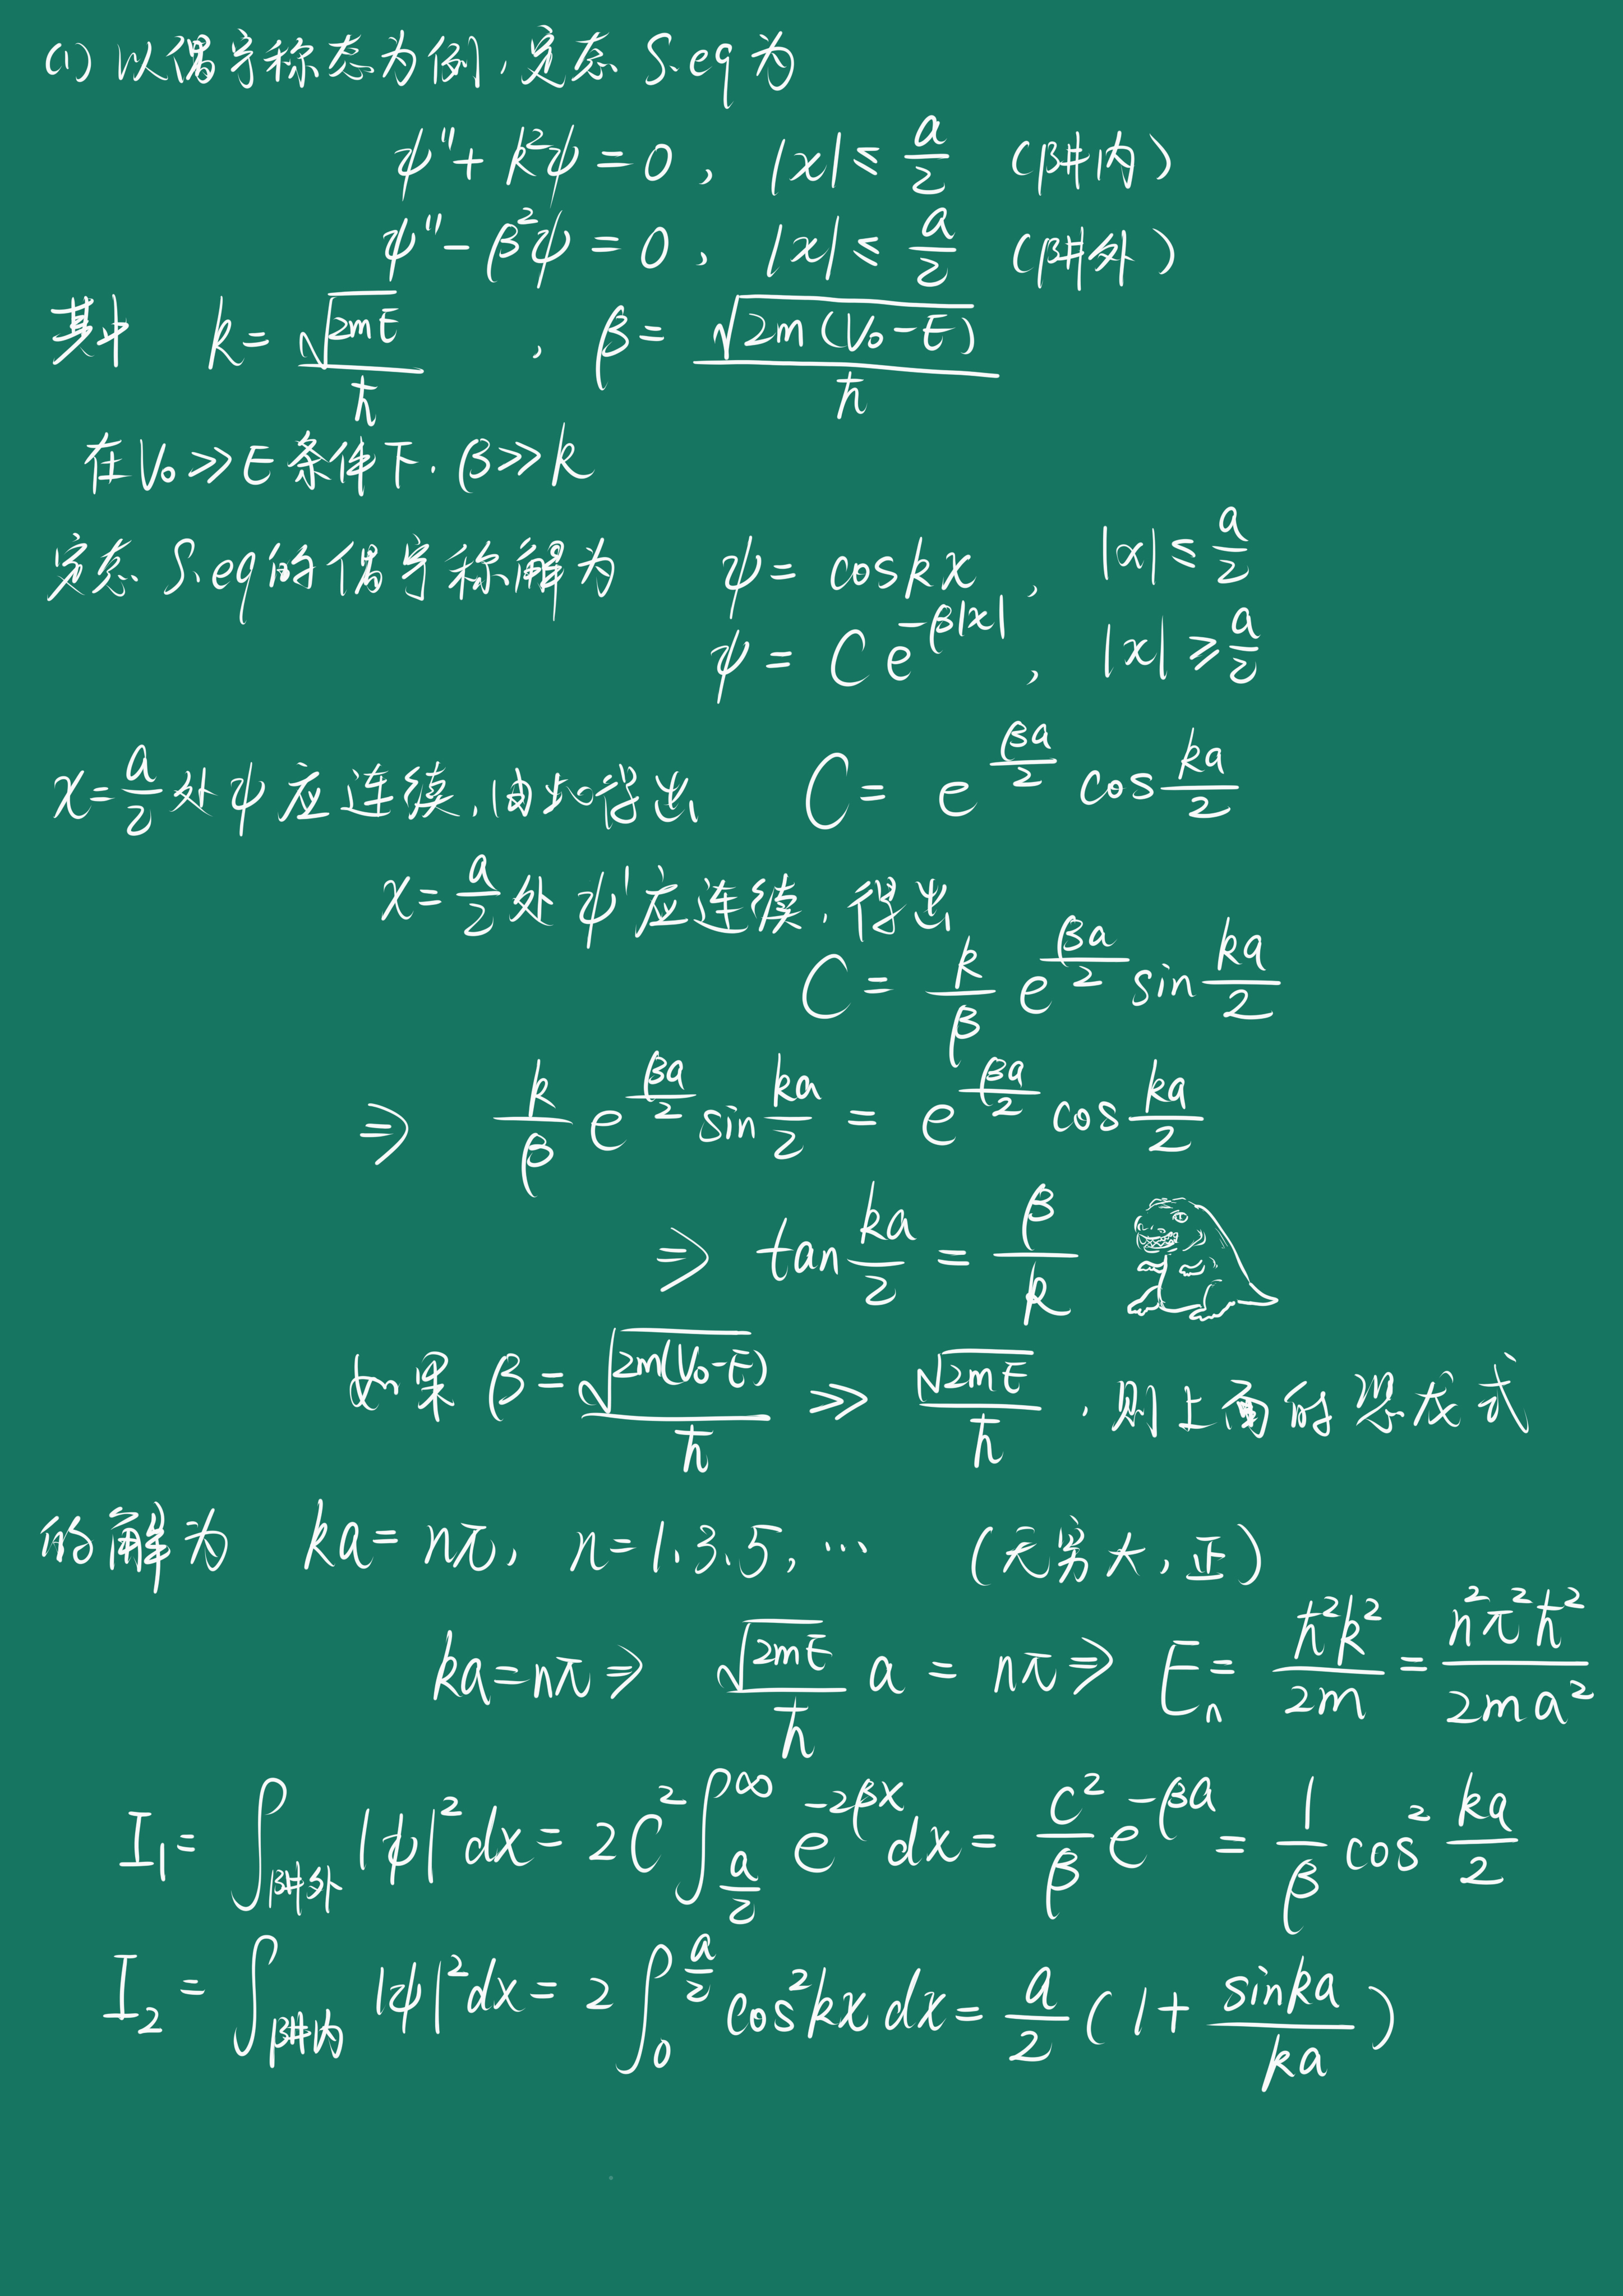 (1) 以偶宇称态为例,定态 S.eq 为
ψ'' + k²ψ = 0 , |x| ≤ a/2 (阱内)
ψ'' - β²ψ = 0 , |x| ≤ a/2 (阱外)
其中 k = √(2mE)/ħ , β = √(2m(V₀-E))/ħ
在 V₀ ≫ E 条件下, β ≫ k
定态 S.eq 的偶宇称解为 ψ = cos kx , |x| ≤ a/2
ψ = C e^(-β|x|) , |x| ≥ a/2
x = a/2 处 ψ 应连续,由此得出 C = e^(βa/2) cos ka/2
x = a/2 处 ψ' 应连续,得出
C = k/β e^(βa/2) sin ka/2
⇒ k/β e^(βa/2) sin ka/2 = e^(βa/2) cos ka/2
⇒ tan ka/2 = β/k
如果 β = √(2m(V₀-E))/ħ ≫ √(2mE)/ħ ,则上面的恐龙式
的解为 ka = nπ, n = 1、3、5, … (无穷大,正)
ka = nπ ⇒ √(2mE)/ħ a = nπ ⇒ Eₙ = ħ²k²/2m = n²π²ħ²/2ma²
I₁ = ∫阱外 |ψ|² dx = 2C² ∫_(a/2)^∞ e^(-2βx) dx = C²/β e^(-βa) = 1/β cos² ka/2
I₂ = ∫阱内 |ψ|² dx = 2 ∫_0^(a/2) cos² kx dx = a/2 (1 + sin ka/ka)